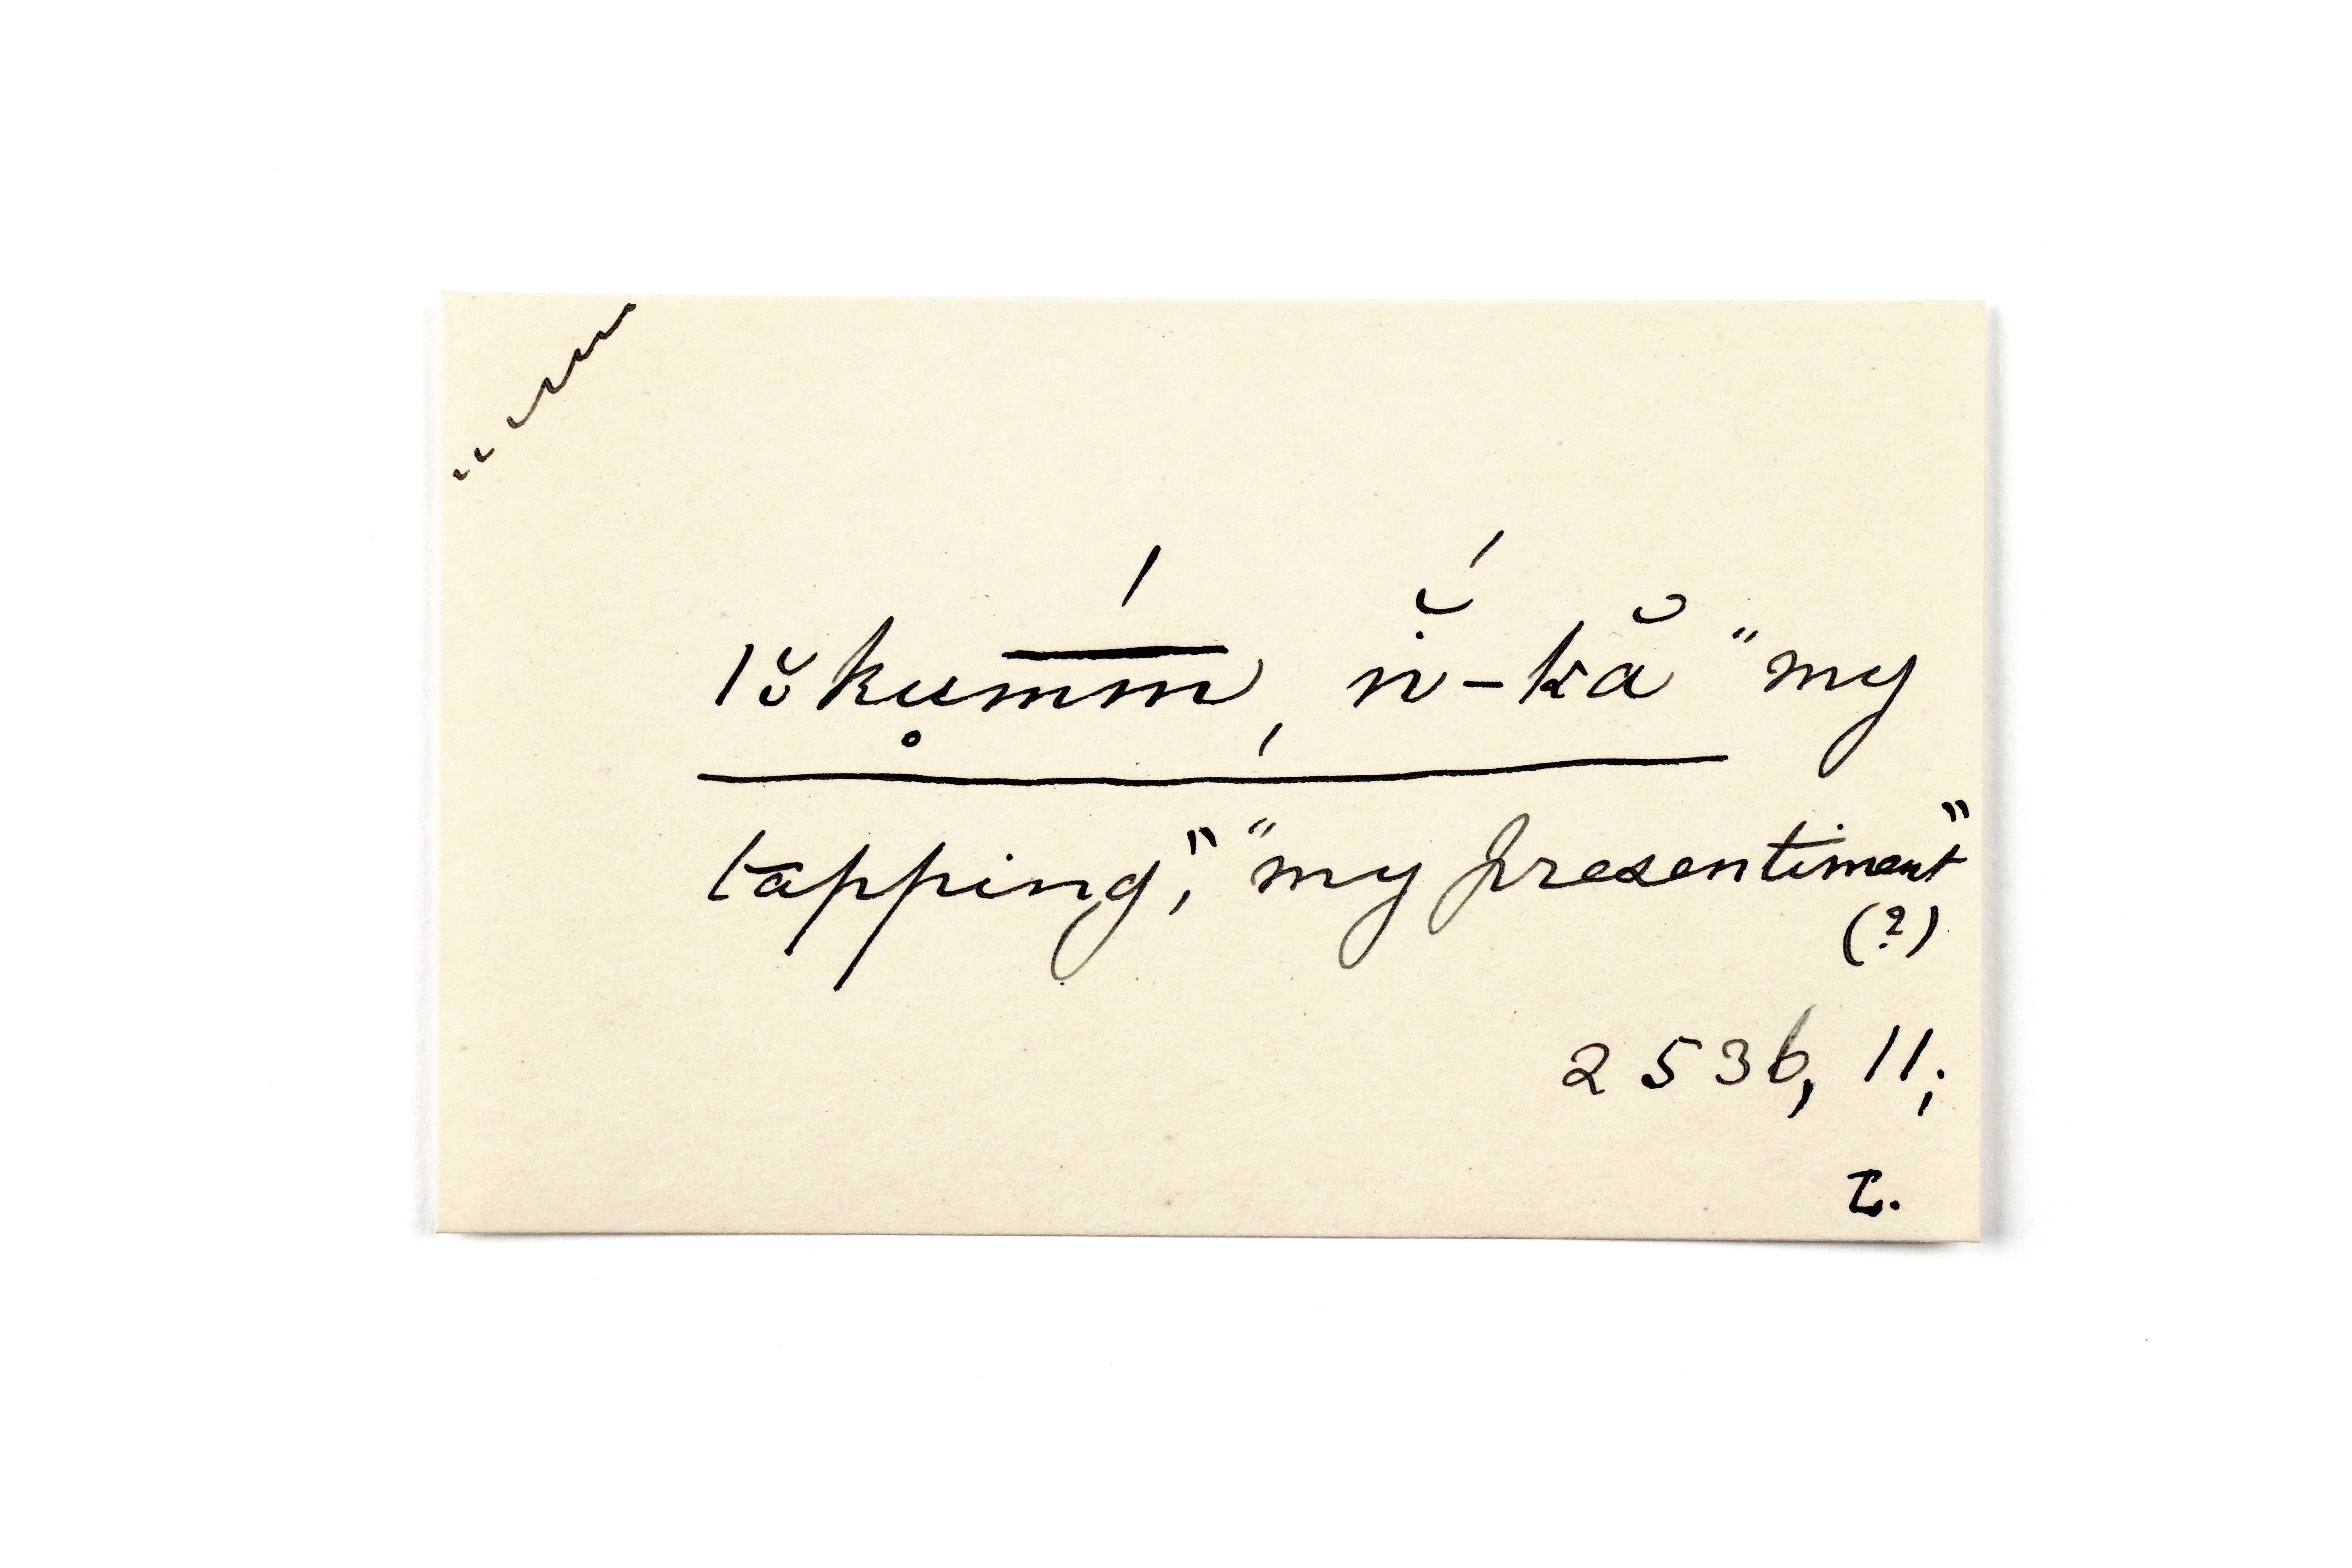 |ŏku̥m̅́m̅, ṅ̆́-kă "my
tapping," "my presentiment"
(?)
2536, 11;